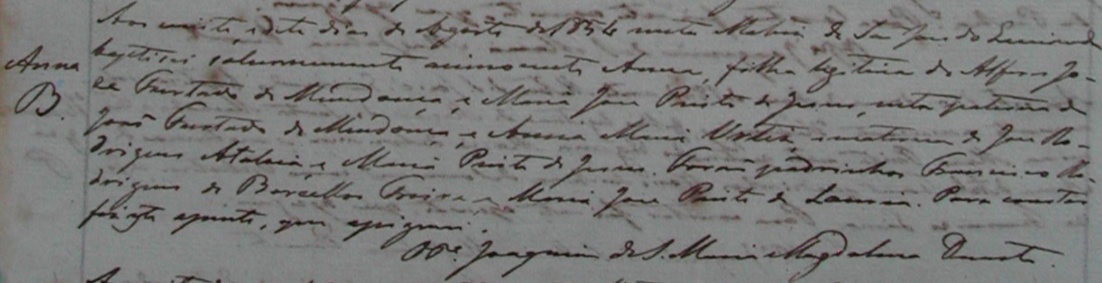 Anna
B.
Aos vinte e sete dias de Agosto de 1854 nesta Matriz de São Jose do
baptisei solennemente a innocente Anna, filha legitima do Alferes Jo-
ze Furtado de Mendonça e Maria Jose Pinto de Jesus, neta paterna de
João Furtado de Mendonça, e Anna Maria e materna de Jose Ro-
drigues Atalaia e Maria Pinto de Jesus. Forão padrinhos Francisco Ro-
drigues de Barcellos Freire e Maria Jose Pinto de Para constar
fiz este assento, que assignei.
O Pe. Joaquim de S. Maria Magdalena Duarte.